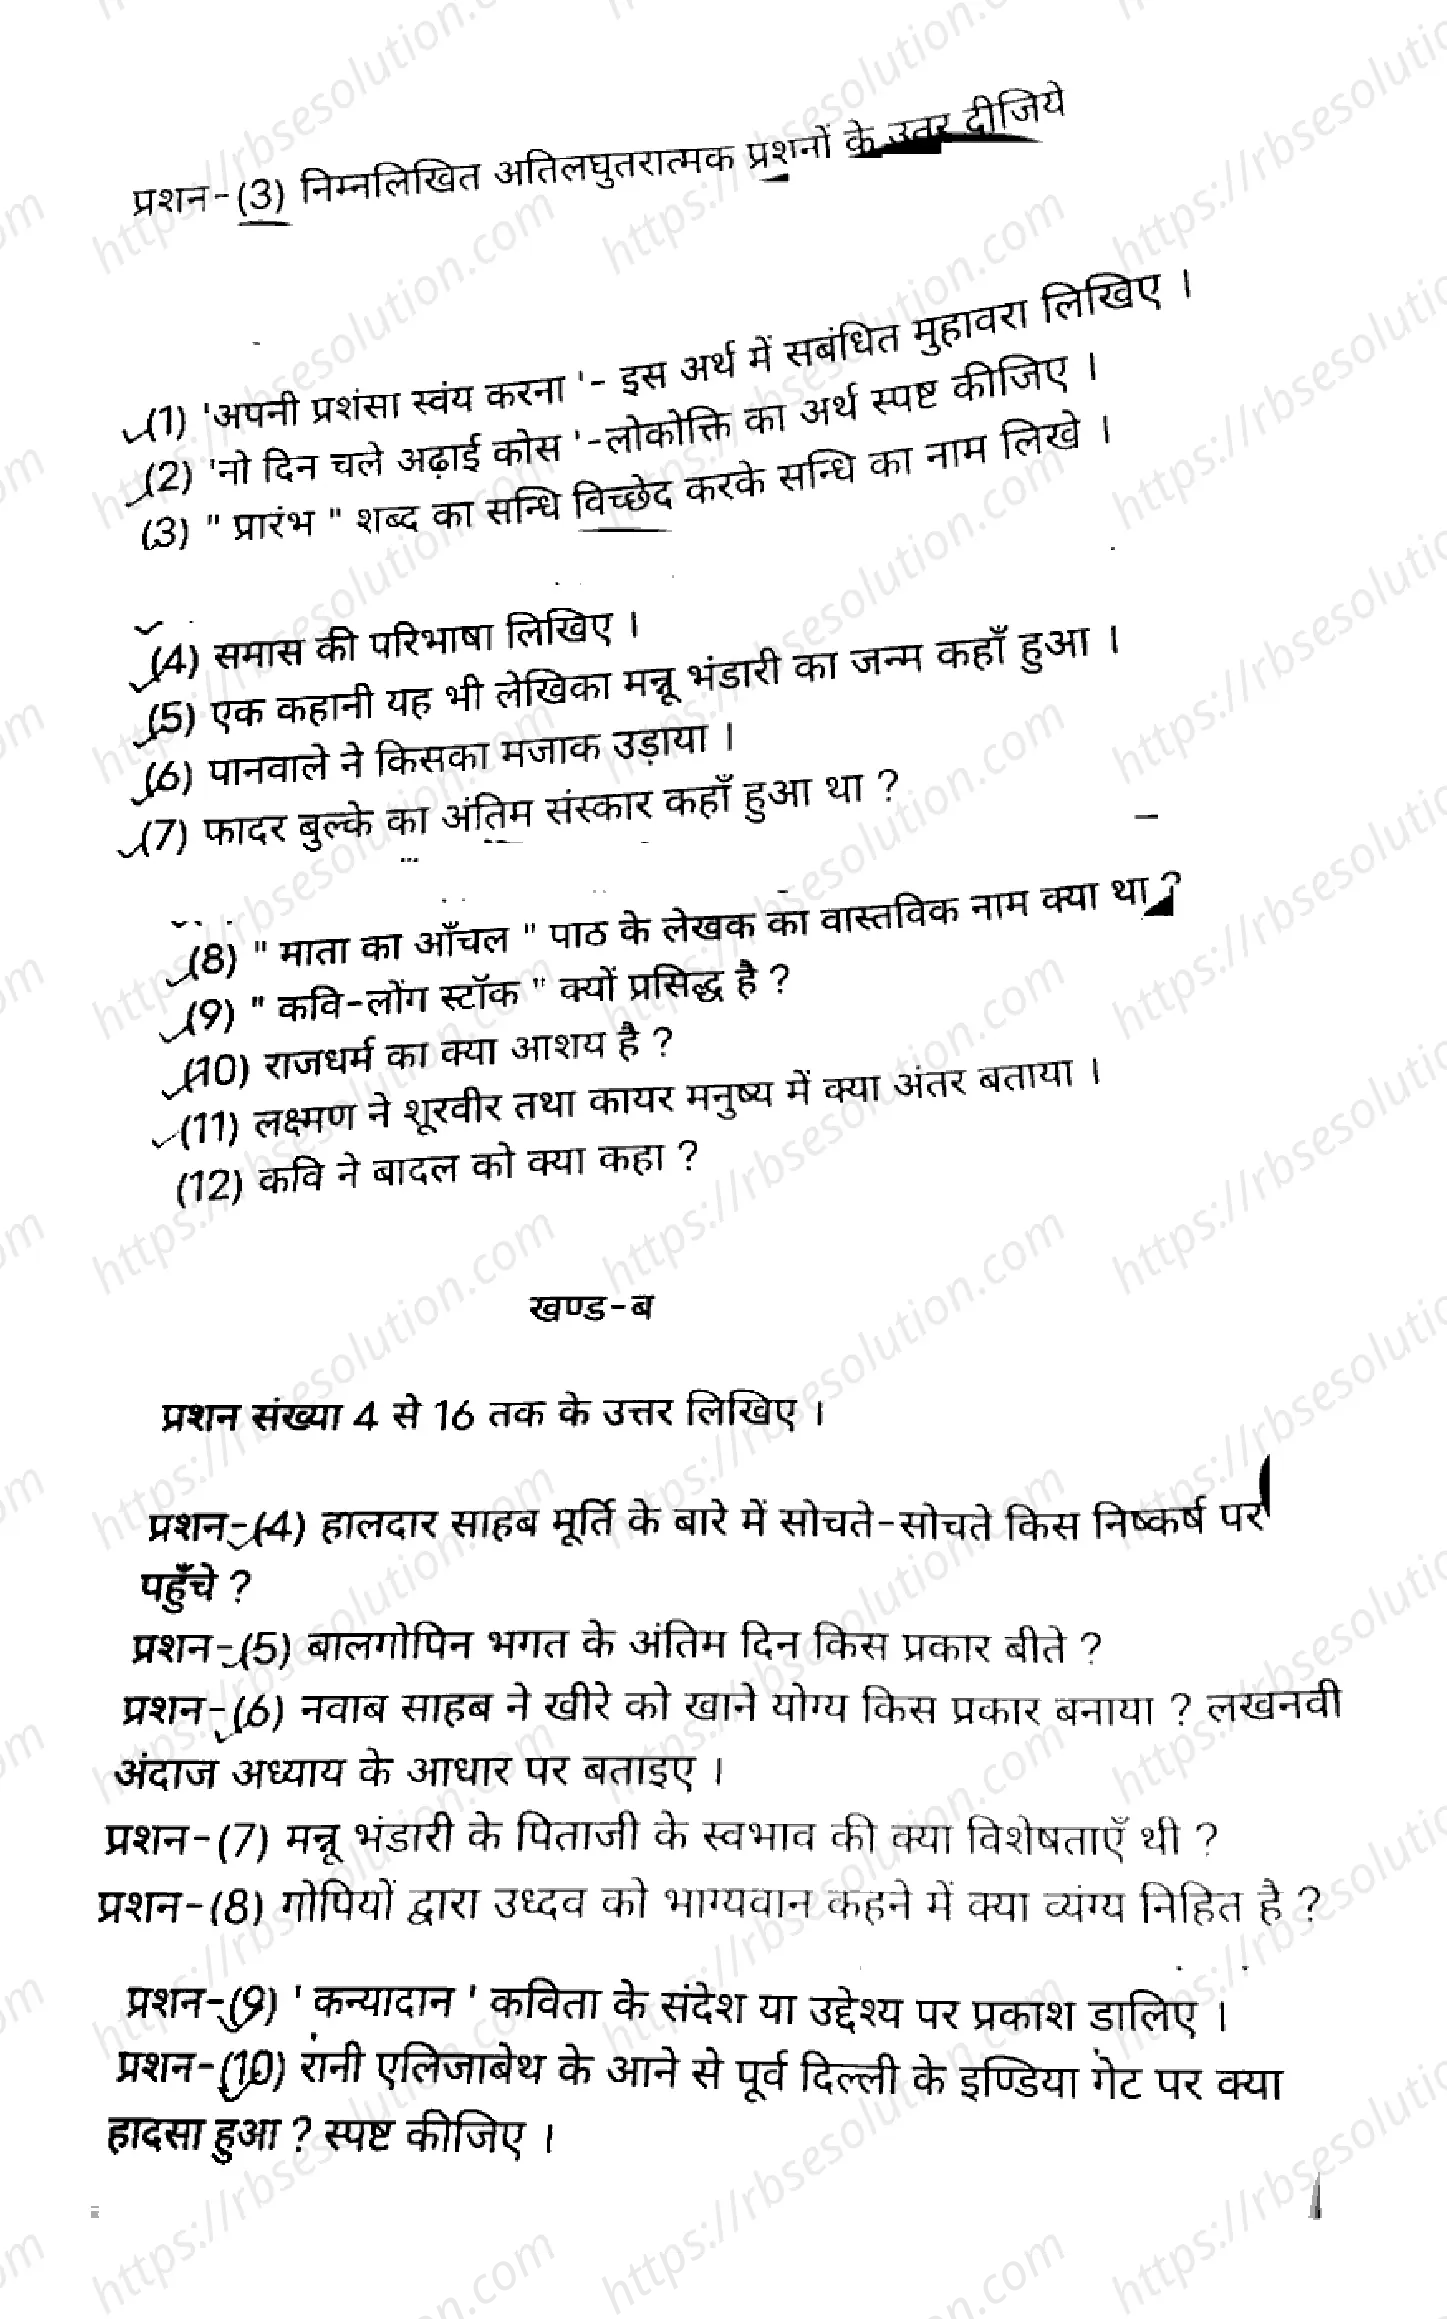 प्रशन-(3) निम्नलिखित अतिलघुतरात्मक प्रशनों के उतर दीजिये
(1) 'अपनी प्रशंसा स्वंय करना '- इस अर्थ में सबंधित मुहावरा लिखिए ।
(2) 'नो दिन चले अढ़ाई कोस '-लोकोक्ति का अर्थ स्पष्ट कीजिए ।
(3) " प्रारंभ " शब्द का सन्धि विच्छेद करके सन्धि का नाम लिखे ।
(4) समास की परिभाषा लिखिए ।
(5) एक कहानी यह भी लेखिका मन्नू भंडारी का जन्म कहाँ हुआ ।
(6) पानवाले ने किसका मजाक उड़ाया ।
(7) फादर बुल्के का अंतिम संस्कार कहाँ हुआ था ?
(8) " माता का आँचल " पाठ के लेखक का वास्तविक नाम क्या था ?
(9) " कवि-लोंग स्टॉक " क्यों प्रसिद्ध है ?
(10) राजधर्म का क्या आशय है ?
(11) लक्ष्मण ने शूरवीर तथा कायर मनुष्य में क्या अंतर बताया ।
(12) कवि ने बादल को क्या कहा ?
खण्ड-ब
प्रशन संख्या 4 से 16 तक के उत्तर लिखिए ।
प्रशन-(4) हालदार साहब मूर्ति के बारे में सोचते-सोचते किस निष्कर्ष पर
पहुँचे ?
प्रशन-(5) बालगोपिन भगत के अंतिम दिन किस प्रकार बीते ?
प्रशन-(6) नवाब साहब ने खीरे को खाने योग्य किस प्रकार बनाया ? लखनवी
अंदाज अध्याय के आधार पर बताइए ।
प्रशन-(7) मन्नू भंडारी के पिताजी के स्वभाव की क्या विशेषताएँ थी ?
प्रशन-(8) गोपियों द्वारा उध्दव को भाग्यवान कहने में क्या व्यंग्य निहित है ?
प्रशन-(9) ' कन्यादान ' कविता के संदेश या उद्देश्य पर प्रकाश डालिए ।
प्रशन-(10) रानी एलिजाबेथ के आने से पूर्व दिल्ली के इण्डिया गेट पर क्या
हादसा हुआ ? स्पष्ट कीजिए ।
https://rbsesolution.com